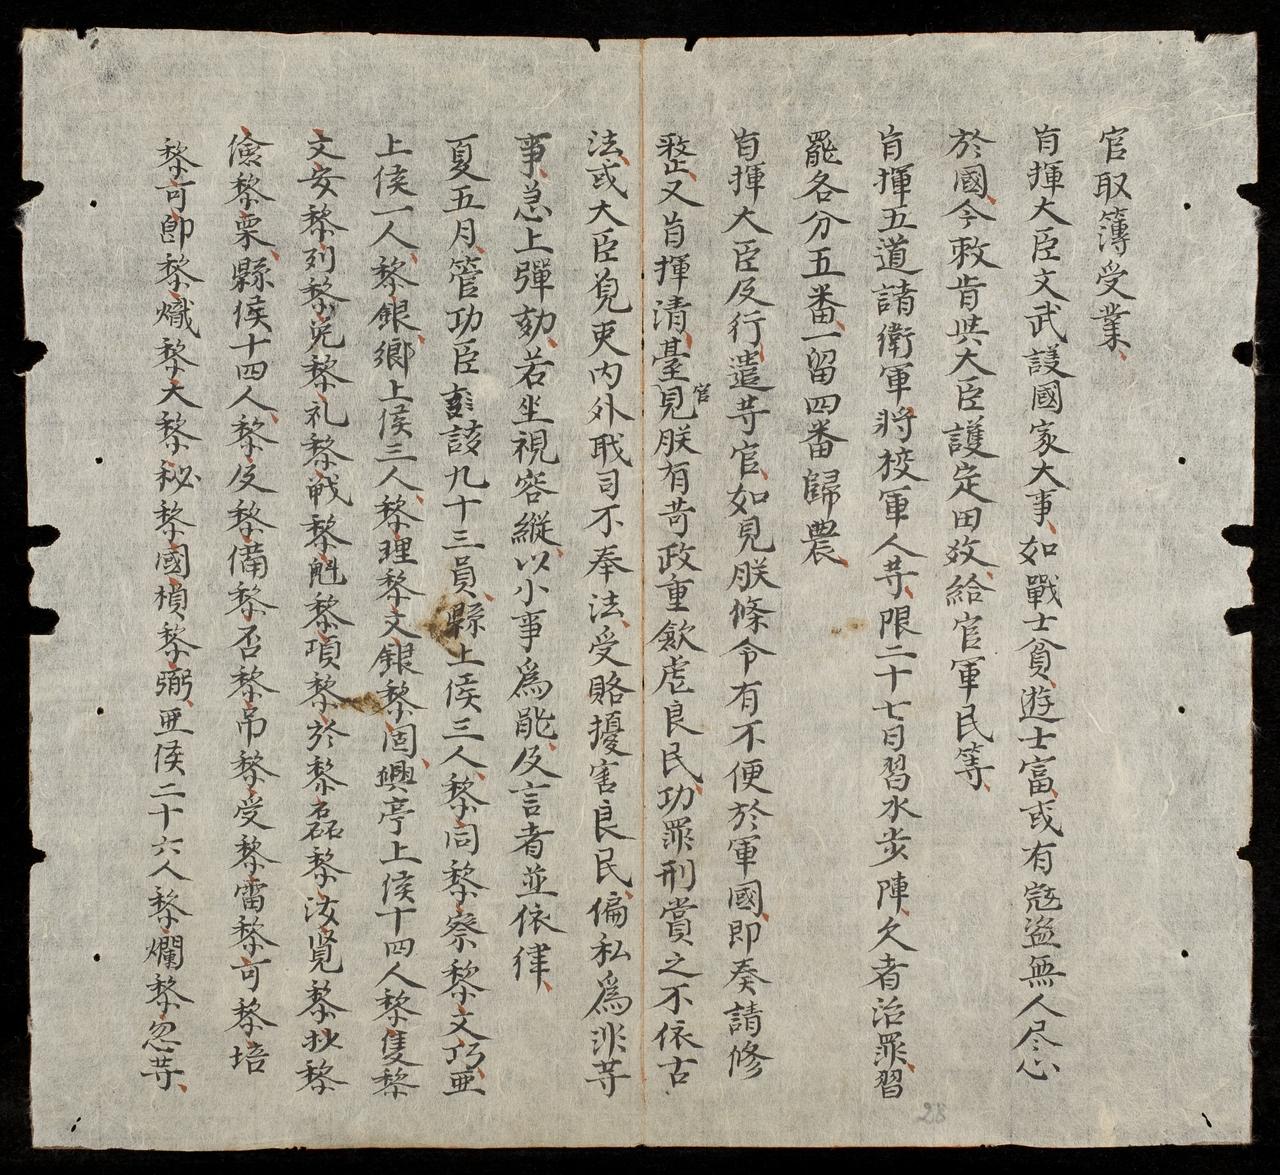 官取簿受業
旨揮大臣文武護國家大事如戰士貧遊士富或有寇盗無人尽心
於國今敕旨共大臣護定田效給官軍民等
旨揮五道諸衛軍將校軍人等限二十七日習水步陣欠者治罪習
罷各分五番一留四番歸農
旨揮大臣及行遣等官如見朕條令有不便於軍國即奏請修
整又旨揮清臺官見朕有苛政重歛虐良民功罪刑賞之不依古
法或大臣見吏内外职司不奉法受賂擾害良民偏私爲非等
事急上彈劾若坐視容縱以小事爲能及言者並依律
夏五月管功臣該九十三員縣上侯三人黎同黎察黎文巧亜
上侯一人黎銀鄉上侯三人黎理黎文銀黎固興亭上侯十四人黎隻黎
文安黎列黎児黎礼黎戦黎魁黎項黎於黎磊黎汝覧黎狄黎
儉黎栗縣侯十四人黎及黎備黎否黎吊黎受黎雷黎可黎培
黎可郎黎熾黎大黎秘黎國楨黎弼亜侯二十六人黎爛黎忽等
28